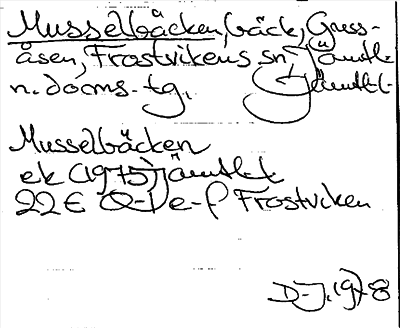 Musselbäcken, bäck, Guss-
åsen, Frostvikens sn, Jämtl.
n. doms. tg. Jämtl.
Musselbäcken
ek (1975) Jämtl.
22E Frostviken
D-J. 1978